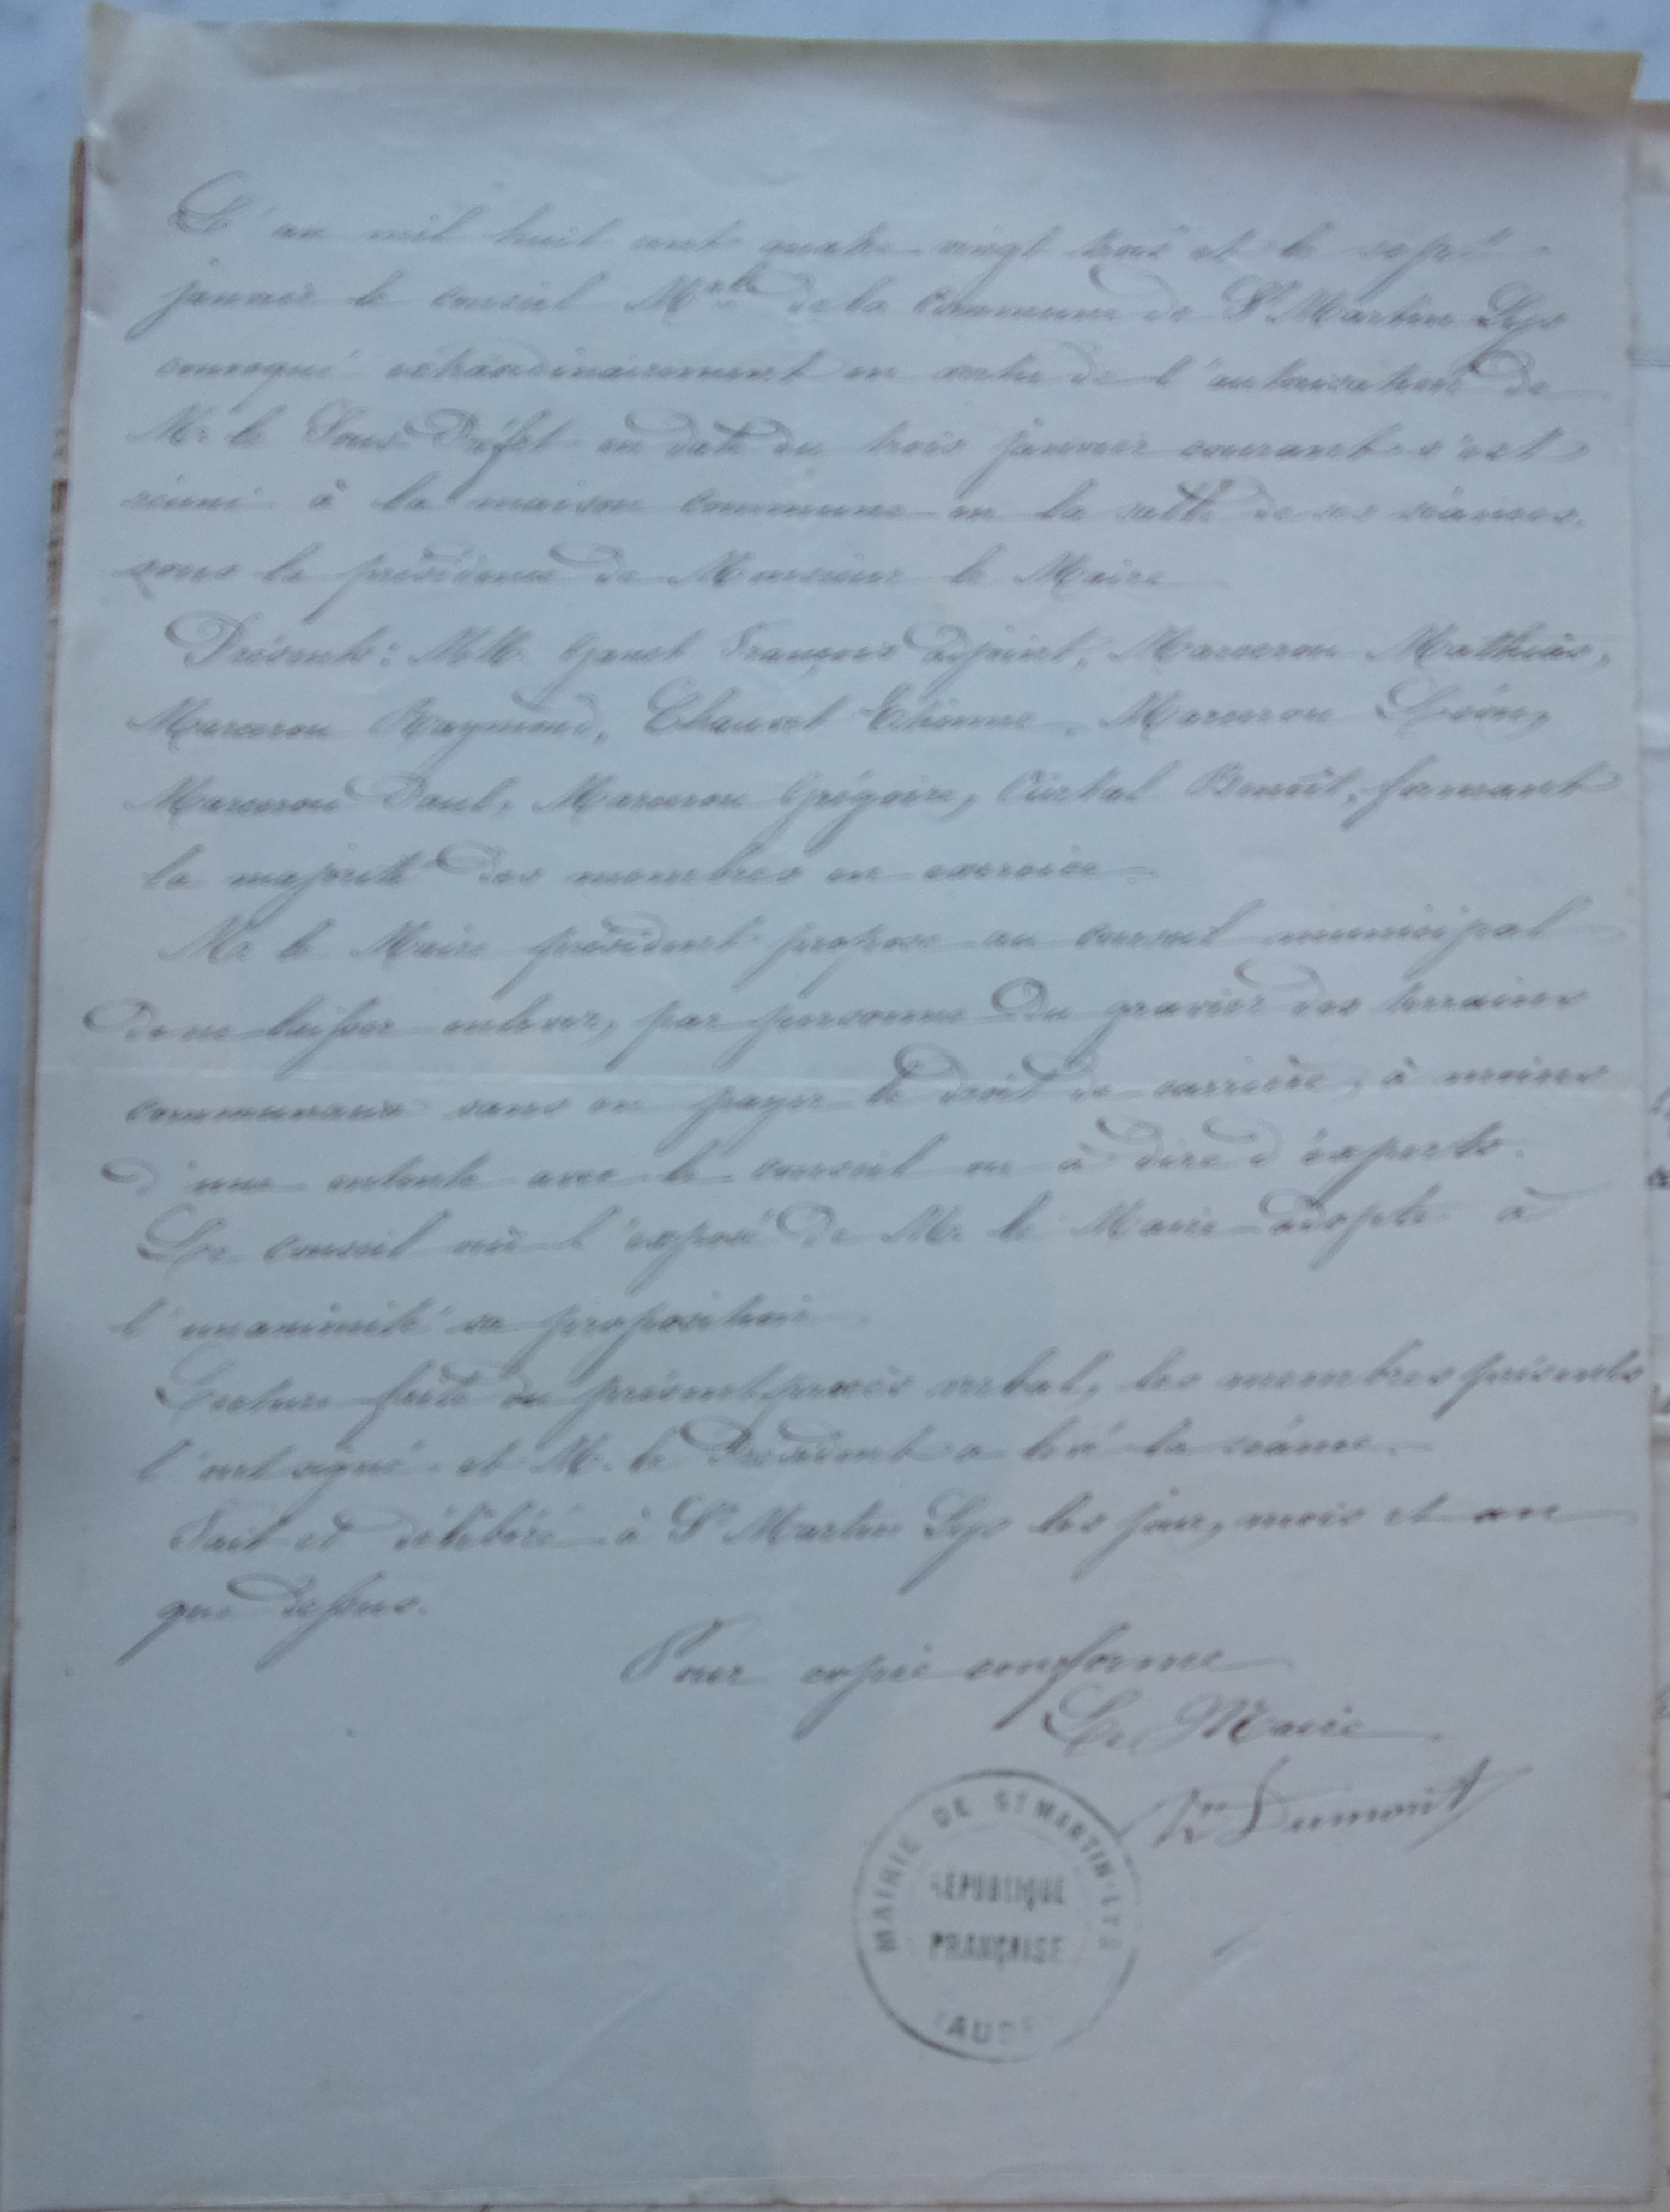 L'an mil huit cent quatre-vingt trois et le sept
janvier le conseil Mpal de la Commune de St Martin Lys
convoqué extraordinairement en vertu de l'autorisation de
Mr le Sous-Préfet en date du trois janvier courant s'est
réuni à la maison commune en la salle de ses séances,
sous la présidence de Monsieur le Maire
Présents: MM. François adjoint, Marcerou Mathias,
Marcerou Raymond, Etienne, Marcerou Léon,
Marcerou Paul, Marcerou Grégoire, Benoît, formant
la majorité des membres en exercice.
Mr le Maire président propose au conseil municipal
de ne laisser enlever, par personne du gravier des terrains
communaux sans en payer le droit de carrière, à moins
d'une entente avec le conseil ou à dire d'experts.
Le conseil ouï l'exposé de M. le Maire adopte à
l'unanimité sa proposition.
Lecture faite du présent procès verbal, les membres présents
l'ont signé et M. le Président a levé la séance.
Fait et délibéré à St Martin Lys les jour, mois et an
que dessus.
Pour copie conforme
Le Maire
Dumont
MAIRIE DE ST MARTIN-LYS
RÉPUBLIQUE
FRANÇAISE
AUDE